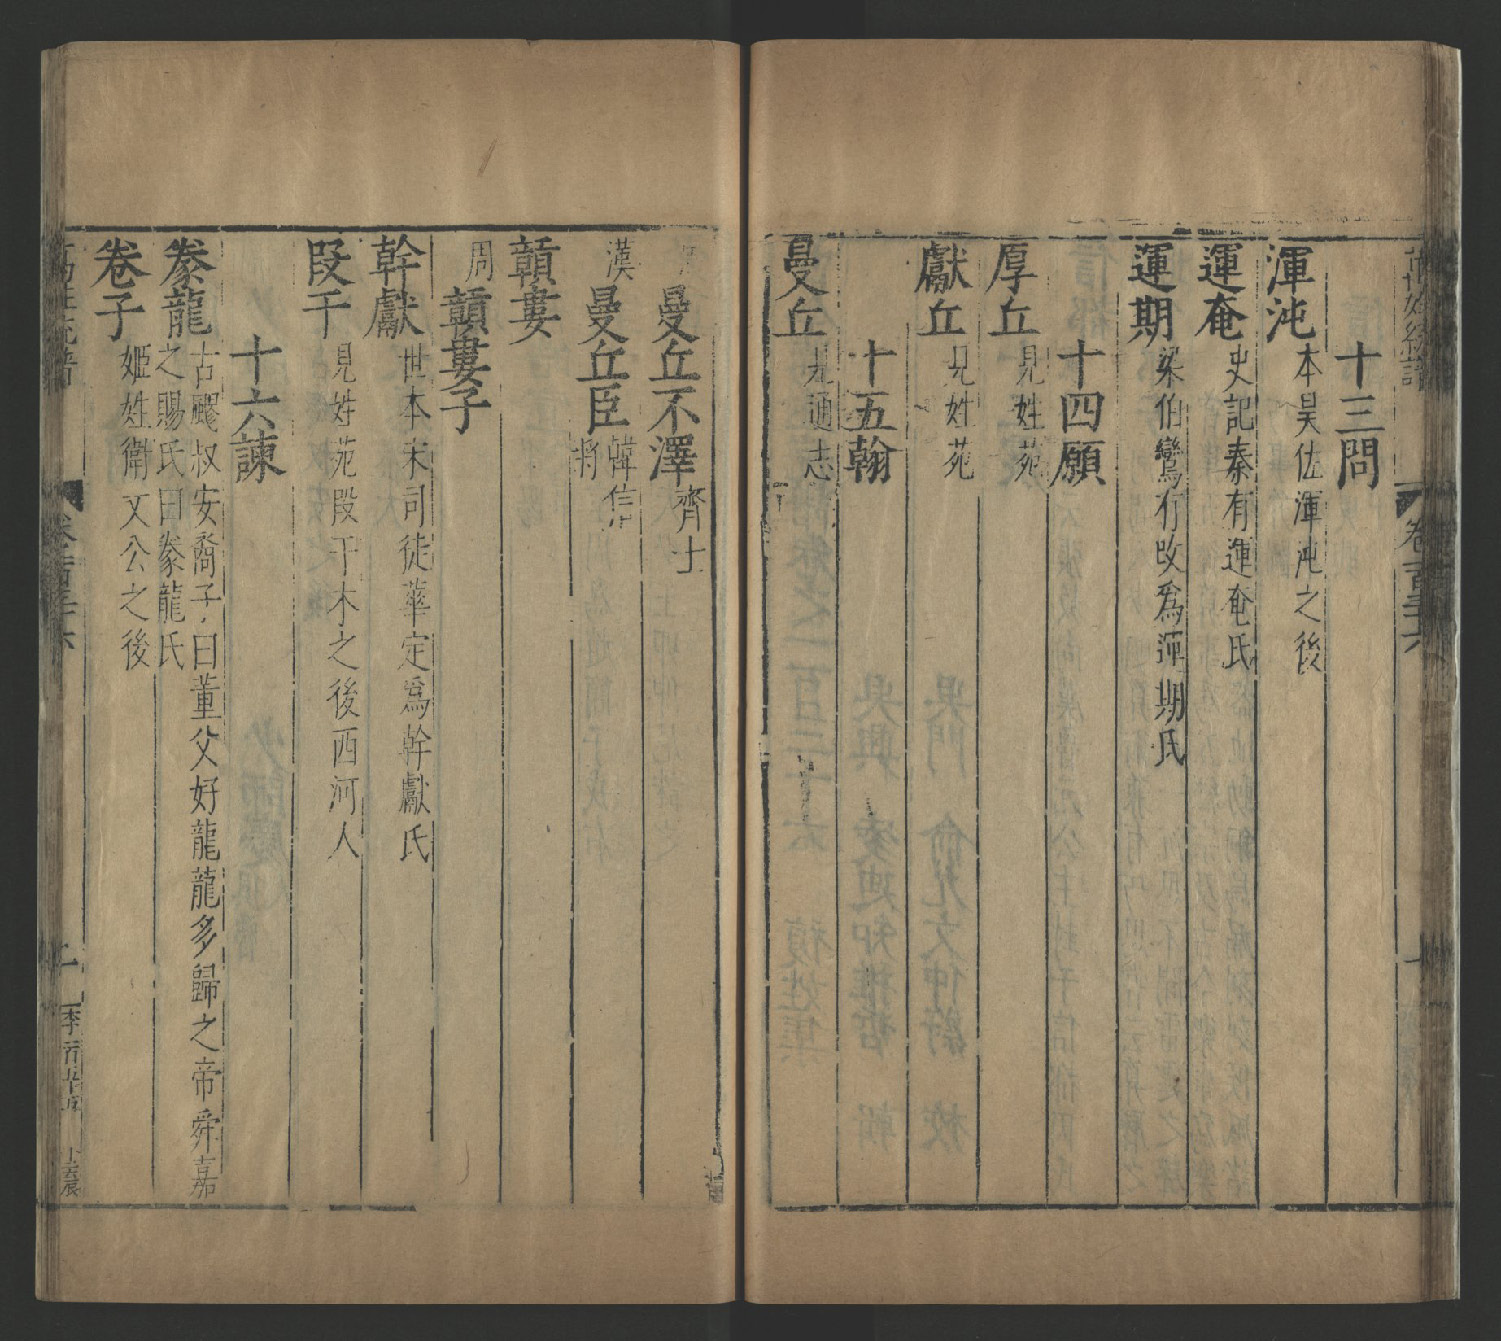 十三問
渾沌本昊佐渾沌之後
運奄史記秦有運奄氏
運期梁伯鸞有改爲運期氏
十四願
厚丘見姓苑
獻丘見姓苑
十五翰
曼丘見通志
曼丘不澤齊士
漢曼丘臣韓信將
顐婁
周顐婁子
幹獻世本宋司徒華定爲幹獻氏
段干見姓苑段干木之後西河人
十六諫
豢龍古飂叔安裔子曰董父好龍龍多歸之帝舜嘉
之賜氏曰豢龍氏
卷子姬姓衛文公之後